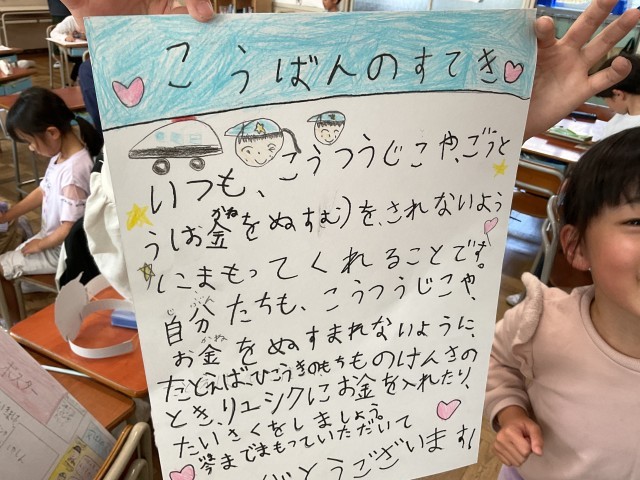 こうばんのすてき
いつも、こうつうじこや、ごうと
う(お金をぬすむ)を、されないよう
かね
にまもってくれることです。
自分たちも、こうつうじこや、
じ ぶん
お金をぬすまれないように、
かね
たとえば、ひこうきのもちものけんさの
とき、リュックにお金を入れたり、
たいさくをしましょう。
今までまもっていただいて
がとうございます!
ポスター